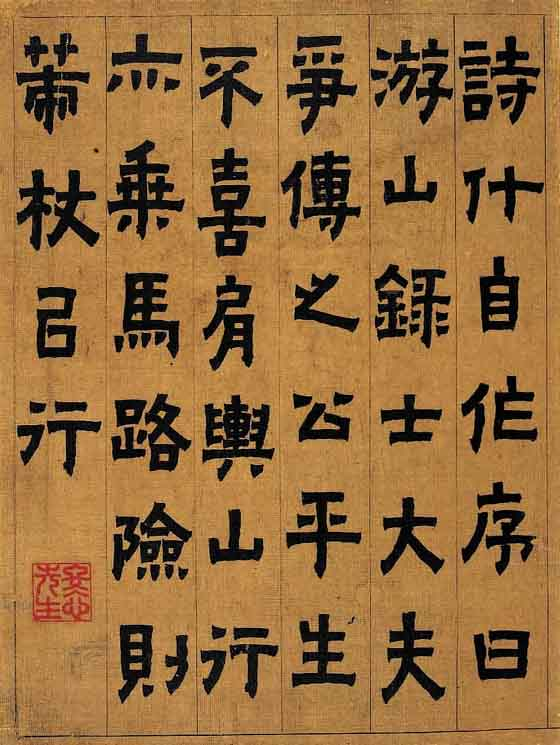 詩什自作序曰
游山録士大夫
爭傳之公平生
不喜肩輿山行
亦乘馬路險則
策杖㠯行
冬心先生